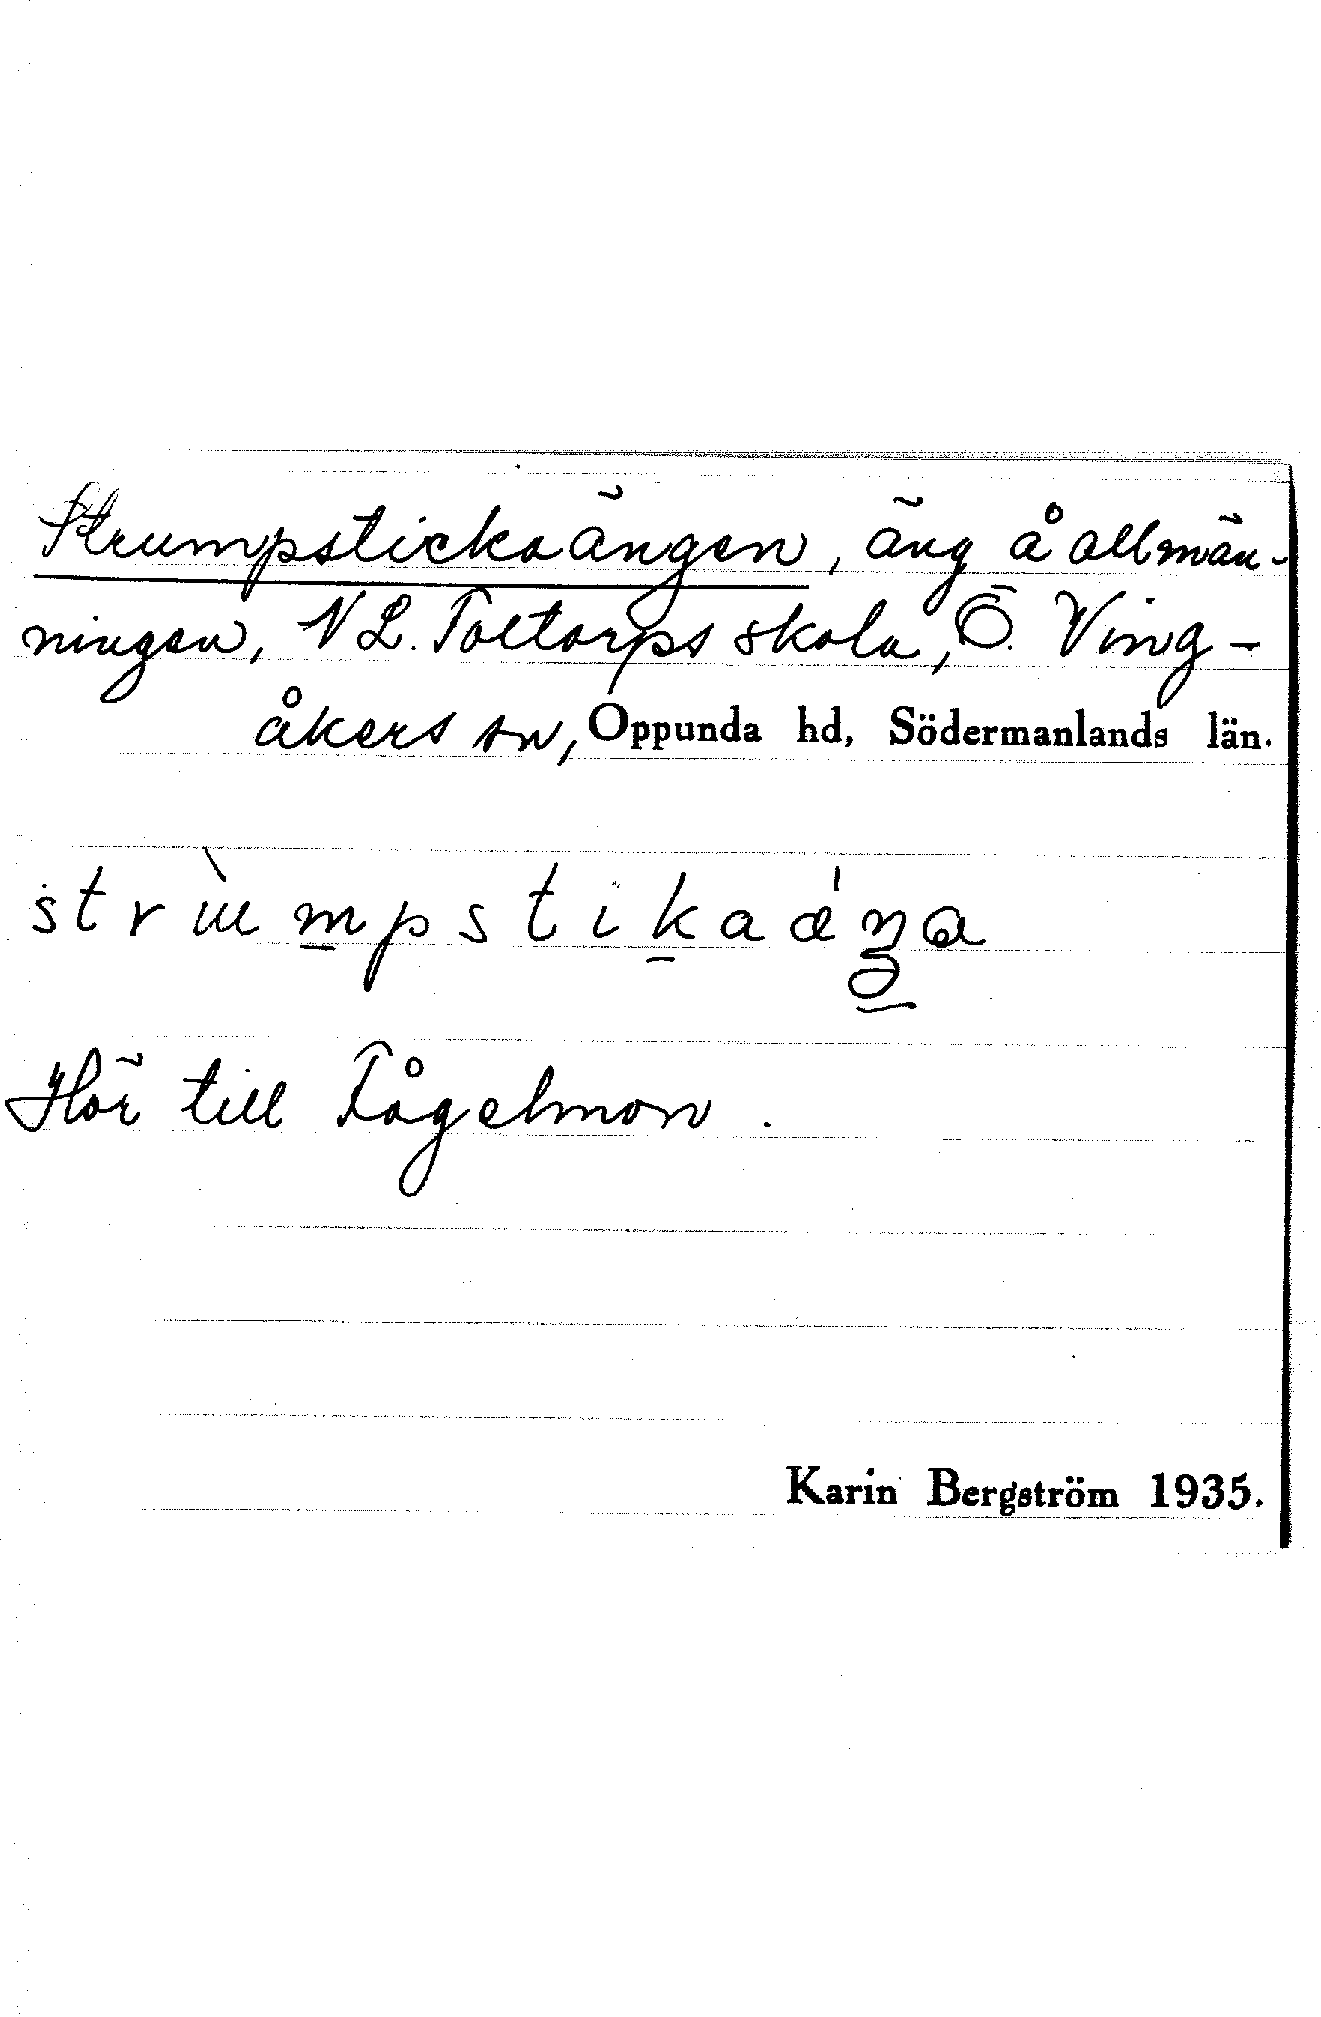 Strumpstickaängen, äng å allmän-
ningen, N L. Toltorps skola, Ö. Ving-
åkers sn, Oppunda hd, Södermanlands län.
Hör till Fågelmon.
Karin Bergström 1935.